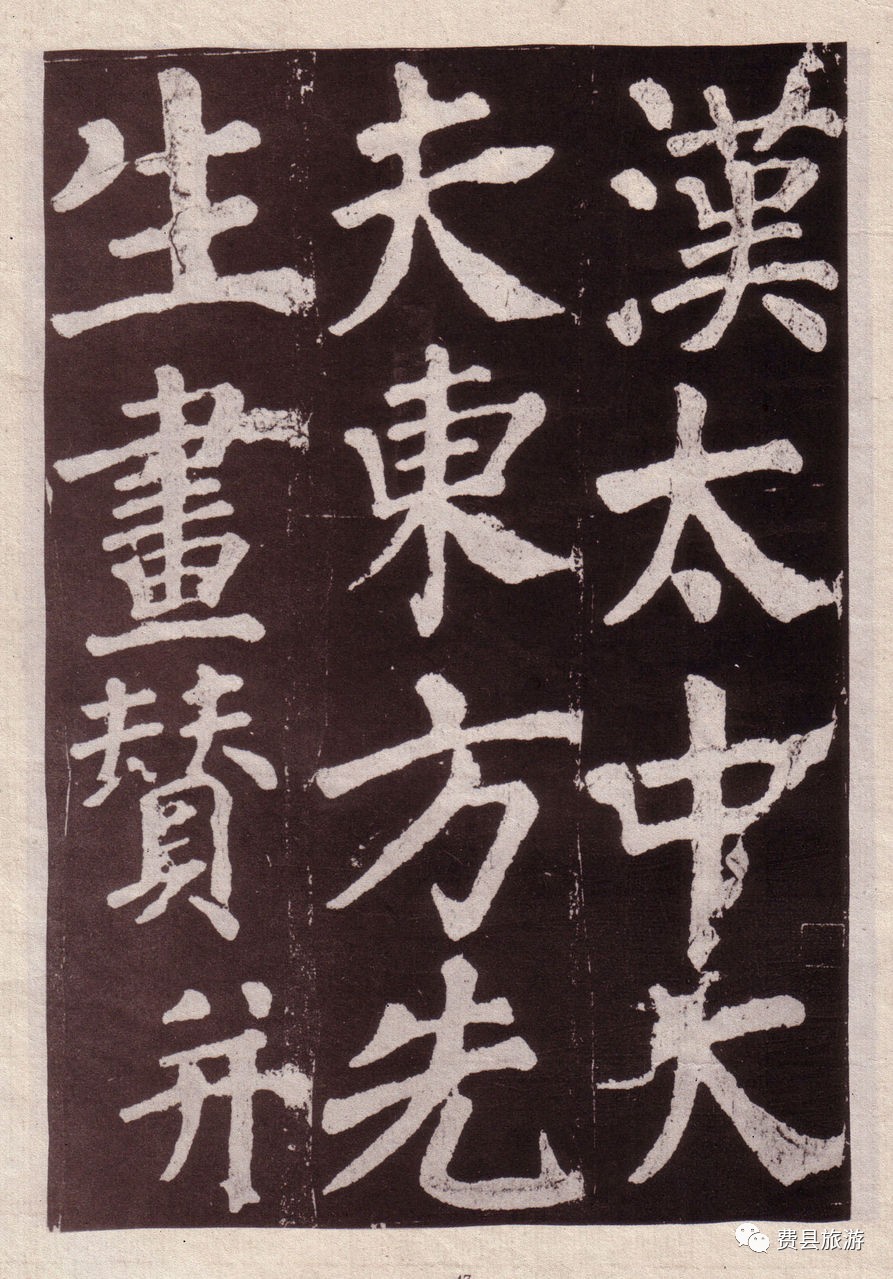 漢太中大
夫東方先
生畫贊并
费县旅游